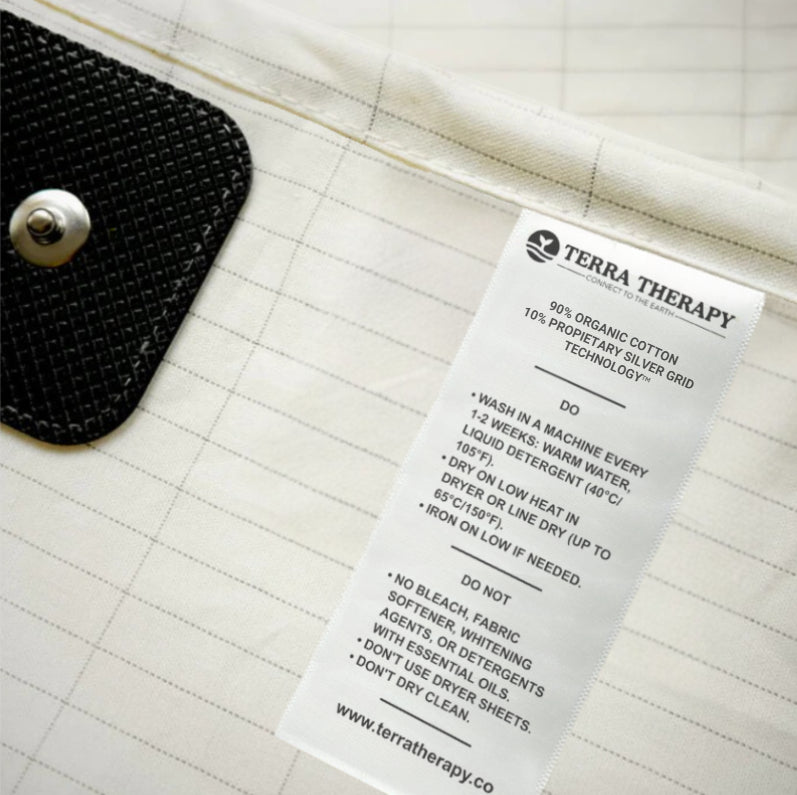 TERRA THERAPY
CONNECT TO THE EARTH
90% ORGANIC COTTON
10% PROPIETARY SILVER GRID
TECHNOLOGY™
DO
• WASH IN A MACHINE EVERY
1-2 WEEKS: WARM WATER,
LIQUID DETERGENT (40°C/
105°F).
• DRY ON LOW HEAT IN
DRYER OR LINE DRY (UP TO
65°C/150°F).
• IRON ON LOW IF NEEDED.
DO NOT
• NO BLEACH, FABRIC
SOFTENER, WHITENING
AGENTS, OR DETERGENTS
WITH ESSENTIAL OILS.
• DON'T USE DRYER SHEETS.
• DON'T DRY CLEAN.
www.terratherapy.co